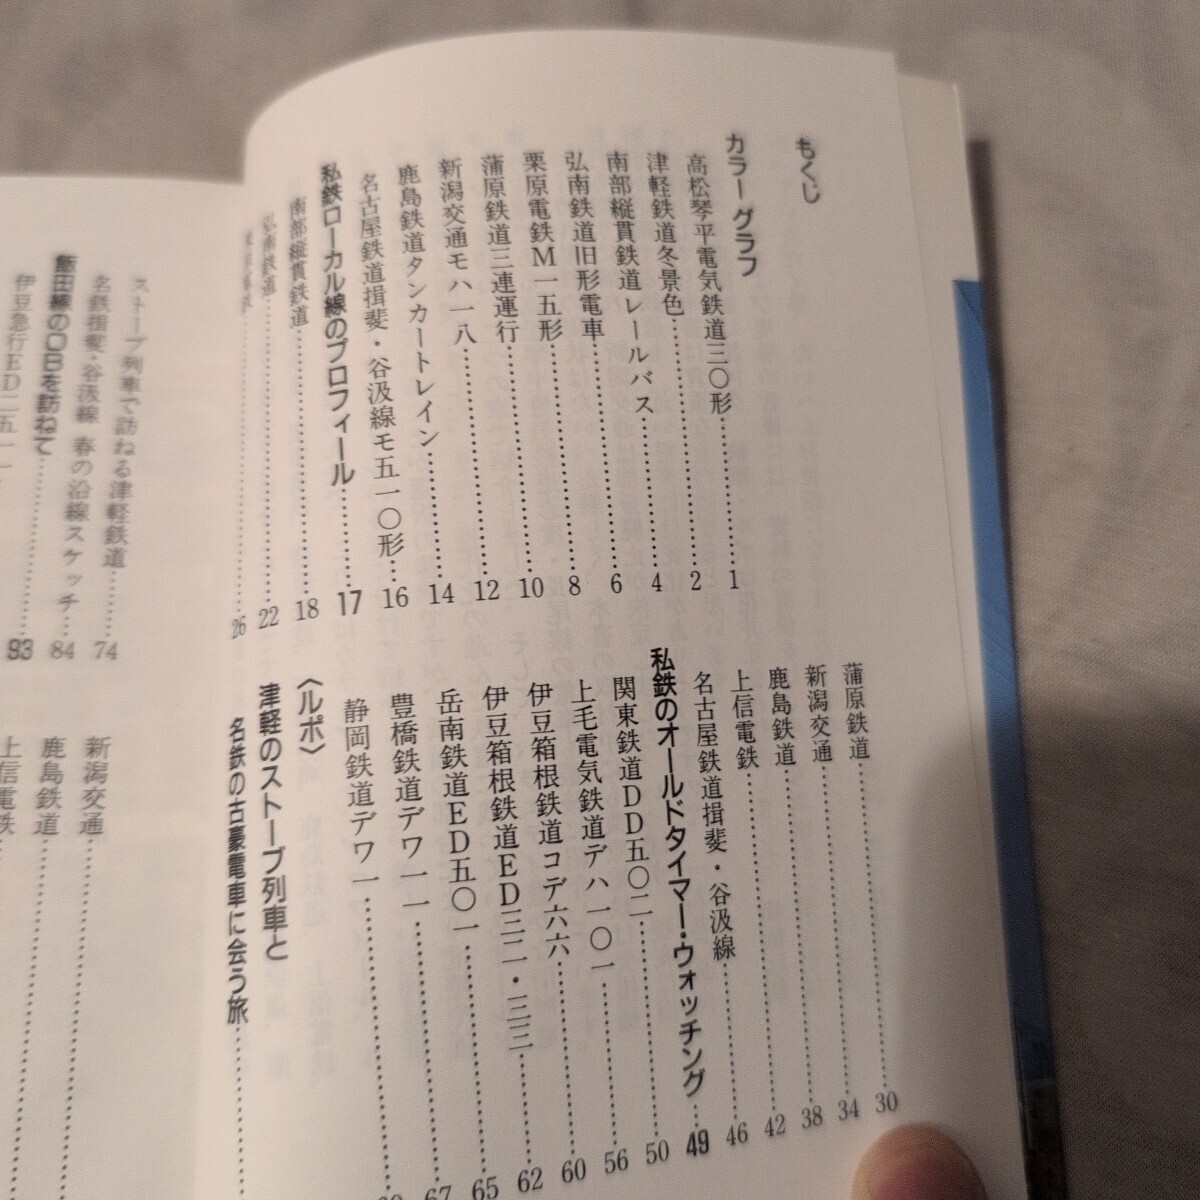 もくじ
カラーグラフ
高松琴平電気鉄道三〇形……1
津軽鉄道冬景色……2
南部縦貫鉄道レールバス……4
弘南鉄道旧形電車……6
栗原電鉄M一五形……8
蒲原鉄道三連運行……10
新潟交通モハ一八……12
鹿島鉄道タンカートレイン……14
名古屋鉄道揖斐・谷汲線モ五一〇形……16
私鉄ローカル線のプロフィール……17
南部縦貫鉄道……18
弘南鉄道……22
……26
蒲原鉄道……30
新潟交通……34
鹿島鉄道……38
上信電鉄……42
名古屋鉄道揖斐・谷汲線……46
私鉄のオールドタイマー・ウォッチング……49
関東鉄道DD五〇二……50
上毛電気鉄道デハ一〇一……56
伊豆箱根鉄道コデ六六……60
伊豆箱根鉄道ED三二・三三……62
岳南鉄道ED五〇一……65
豊橋鉄道デワ一一……67
静岡鉄道デワ一……
〈ルポ〉
津軽のストーブ列車と
名鉄の古豪電車に会う旅……
ストーブ列車で訪ねる津軽鉄道……74
名鉄揖斐・谷汲線 春の沿線スケッチ……84
飯田線のOBを訪ねて……93
伊豆急行ED二五一一……
新潟交通……
鹿島鉄道……
上信電鉄……